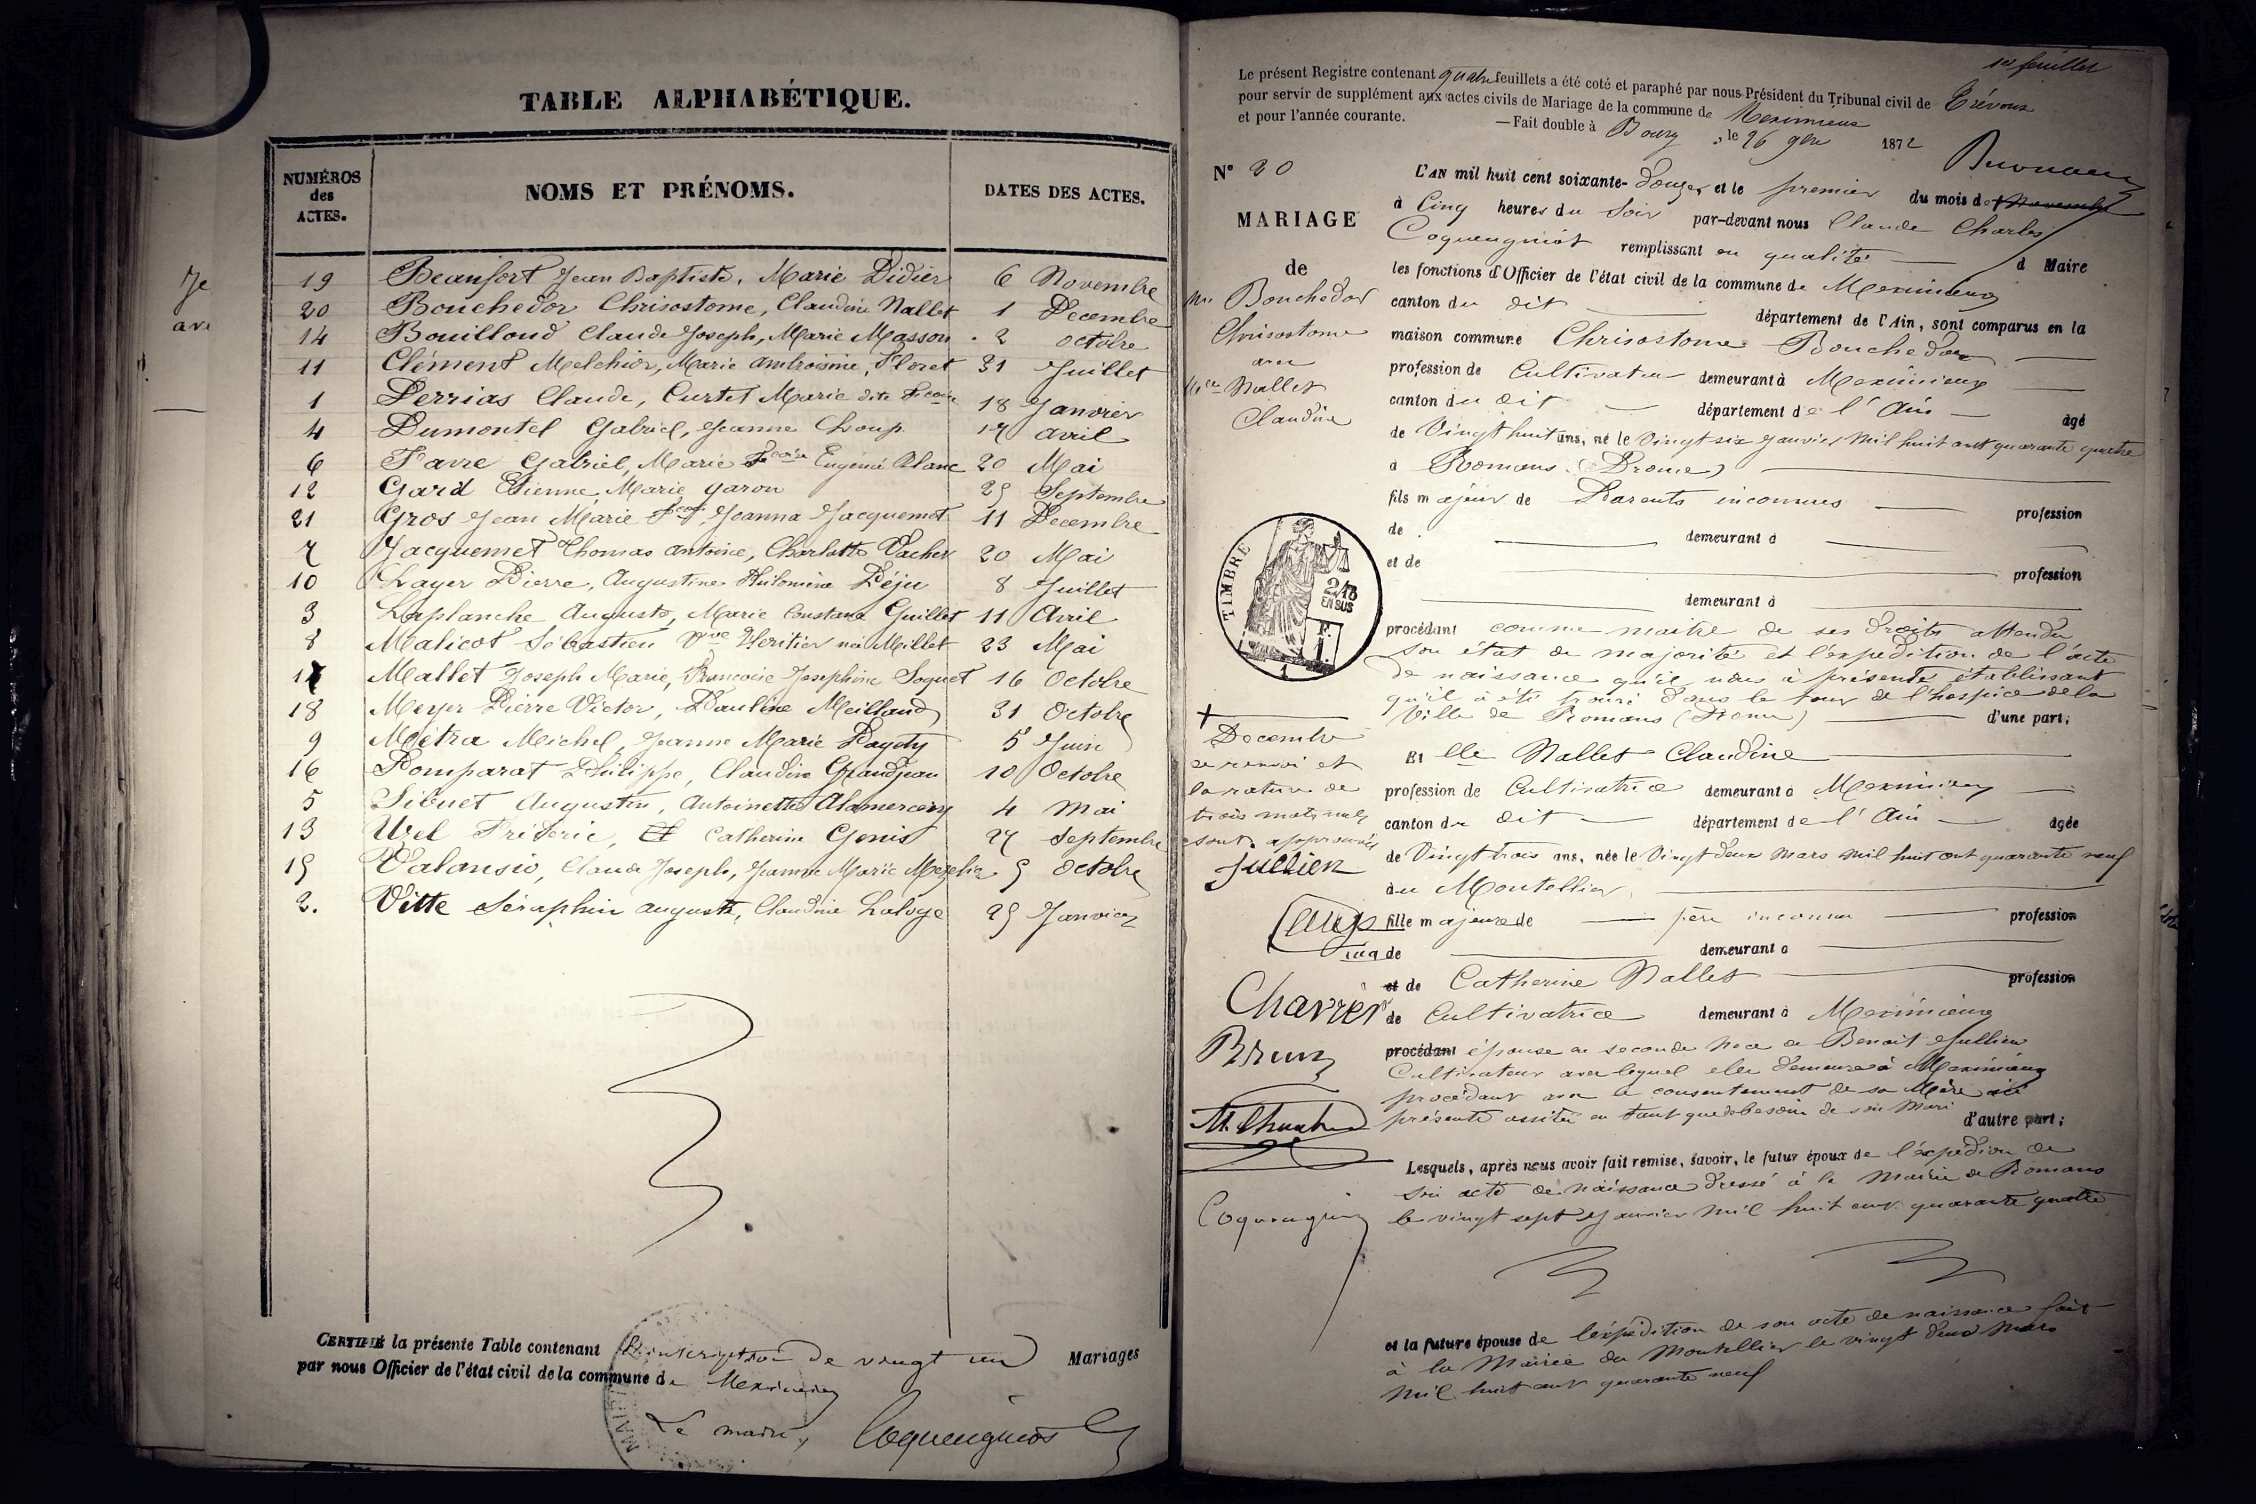 TABLE ALPHABÉTIQUE.
NUMÉROS des ACTES.
NOMS ET PRÉNOMS.
DATES DES ACTES.
19 Beaufort Jean Baptiste, Marie Didier 6 Novembre
20 Bouchedor Chrisostome, Claudine Nallet 1 Decembre
14 Bouilloud Claude Joseph, Marie Masson 2 octobre
11 Clément Melchior, Marie ambroisine Floret 31 Juillet
1 Derrias Claude, Curtet Marie dite 18 Janvier
4 Dumontel Gabriel, Jeanne Choup 17 avril
6 Favre Gabriel, Marie Eugénie Blanc 20 Mai
12 Gard Etienne, Marie garon 25 Septembre
21 Gros Jean Marie Jeanna Jacquemet 11 Decembre
7 Jacquemet Thomas antoine, Charlotte Vacher 20 Mai
10 Layer Pierre, Augustine Philomène Déju 8 Juillet
3 Laplanche Auguste, Marie Constance Guillet 11 Avril
8 Malicot Sébastien Vve Heritier née Millet 23 Mai
17 Mallet Joseph Marie, Francoise Josephine Soquet 16 Octobre
18 Meyer Pierre Victor, Pauline Meilland 31 Octobre
9 Moëtra Michel, Jeanne Marie Pagety 5 Juin
16 Pomparat Philippe, Claudine Grandjean 10 Octobre
5 Sibuet Augustin, Antoinette Alamercery 4 Mai
13 Urel Fréderic, Catherine Genis 27 Septembre
15 Valansio, Claude Joseph, Jeanne Marie 5 Octobre
2. Vitte Séraphin auguste, Claudine Laloge 25 Janvier
CERTIFIÉ la présente Table contenant L'inscription de vingt un Mariages
par nous Officier de l'état civil de la commune de Meximieux
Le maire, Coqueugniot
1er feuillet
Le présent Registre contenant quatre feuillets a été coté et paraphé par nous Président du Tribunal civil de Trévoux
pour servir de supplément aux actes civils de Mariage de la commune de Meximieux
et pour l'année courante. — Fait double à Bourg, le 26 9bre 1872
N° 20
MARIAGE
de
Mr Bouchedor
Chrisostome
avec
Melle Nallet
Claudine
L'AN mil huit cent soixante-douze et le premier du mois de Novembre
à Cinq heures du Soir par-devant nous Claude Charles
Coqueugniot remplissant en qualité d Maire
les fonctions d'Officier de l'état civil de la commune de Meximieux
canton du dit département de l'Ain, sont comparus en la
maison commune Chrisostome Bouchedor
profession de Cultivateur demeurant à Meximieux
canton du dit département de l'Ain agé
de Vingt huit ans, né le Vingt six Janvier Mil huit cent quarante quatre
à Romans (Drome)
fils majeur de Parents inconnus profession
de demeurant à
et de profession
demeurant à
TIMBRE
2/10
EN SUS
F.
1.
procédant comme maitre de ses droits attendu
son état de majorité et l'expedition de l'acte
de naissance qu'il nous à présenté établissant
qu'il à été trouvé dans le tour de l'hospice de la
Ville de Romans (Drome) d'une part;
Et elle Nallet Claudine
profession de Cultivatrice demeurant à Meximieux
canton du dit département de l'Ain agée
de Vingt trois ans, née le Vingt deux Mars Mil huit cent quarante neuf
au Montellier
fille majeure de père inconnu profession
de demeurant à
et de Catherine Nallet profession
de Cultivatrice demeurant à Meximieux
procédant épouse en seconde noce de Benoit Jullien
Cultivateur avec lequel elle demeure à Meximieux
procédant avec le consentement de sa Mère ici
présente assistée en tant que de besoin de son Mari d'autre part;
Lesquels, après nous avoir fait remise, savoir, le futur époux de l'expedion de
son acte de naissance dressé à la Mairie de Romans
le vingt sept Janvier Mil huit cent quarante quatre
et la future épouse de l'expédition de son acte de naissance fait
à la Mairie du Montellier le vingt deux Mars
Mil huit cent quarante neuf
+ Decembre
ce renvoi et
la rature de
trois mots nuls
sont approuvés
Jullien
Chavrier
Brun
Coqueugniot